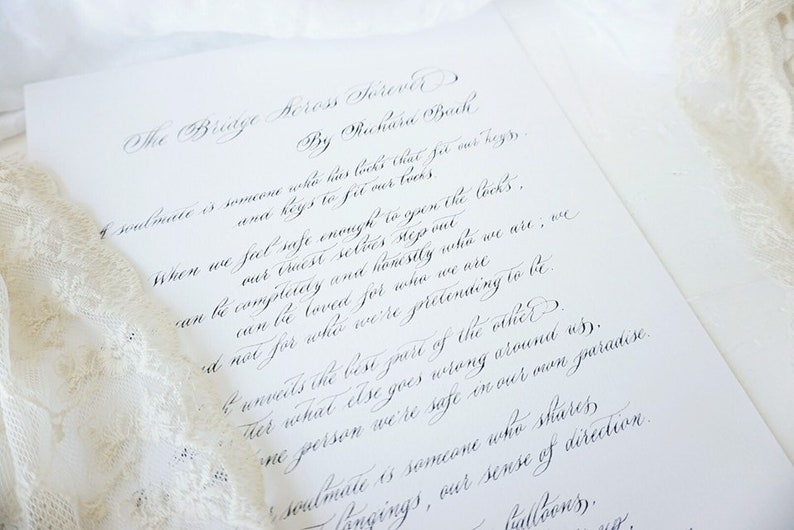 The Bridge Across Forever
By Richard Bach
A soulmate is someone who has locks that fit our keys,
and keys to fit our locks.
When we feel safe enough to open the locks,
our truest selves step out
can be completely and honestly who we are; we
can be loved for who we are
not for who we're pretending to be.
unveils the best part of the other.
what else goes wrong around us,
one person we're safe in our own paradise.
soulmate is someone who shares
longings, our sense of direction.
balloons,